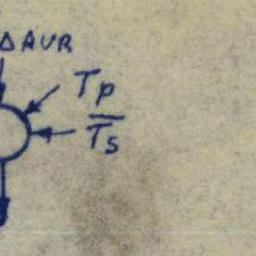 ΔAVR
Tp
T̅s